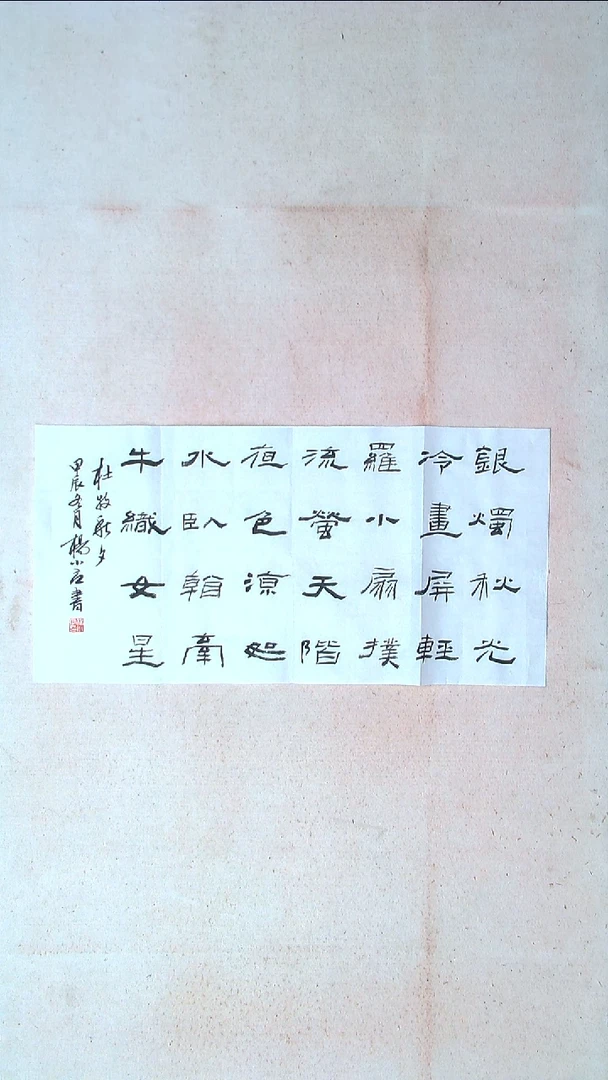 銀燭秋光
冷畫屏輕
羅小扇撲
流螢天階
夜色涼如
水臥看牽
牛織女星
杜牧秋夕
甲辰冬月楊小書